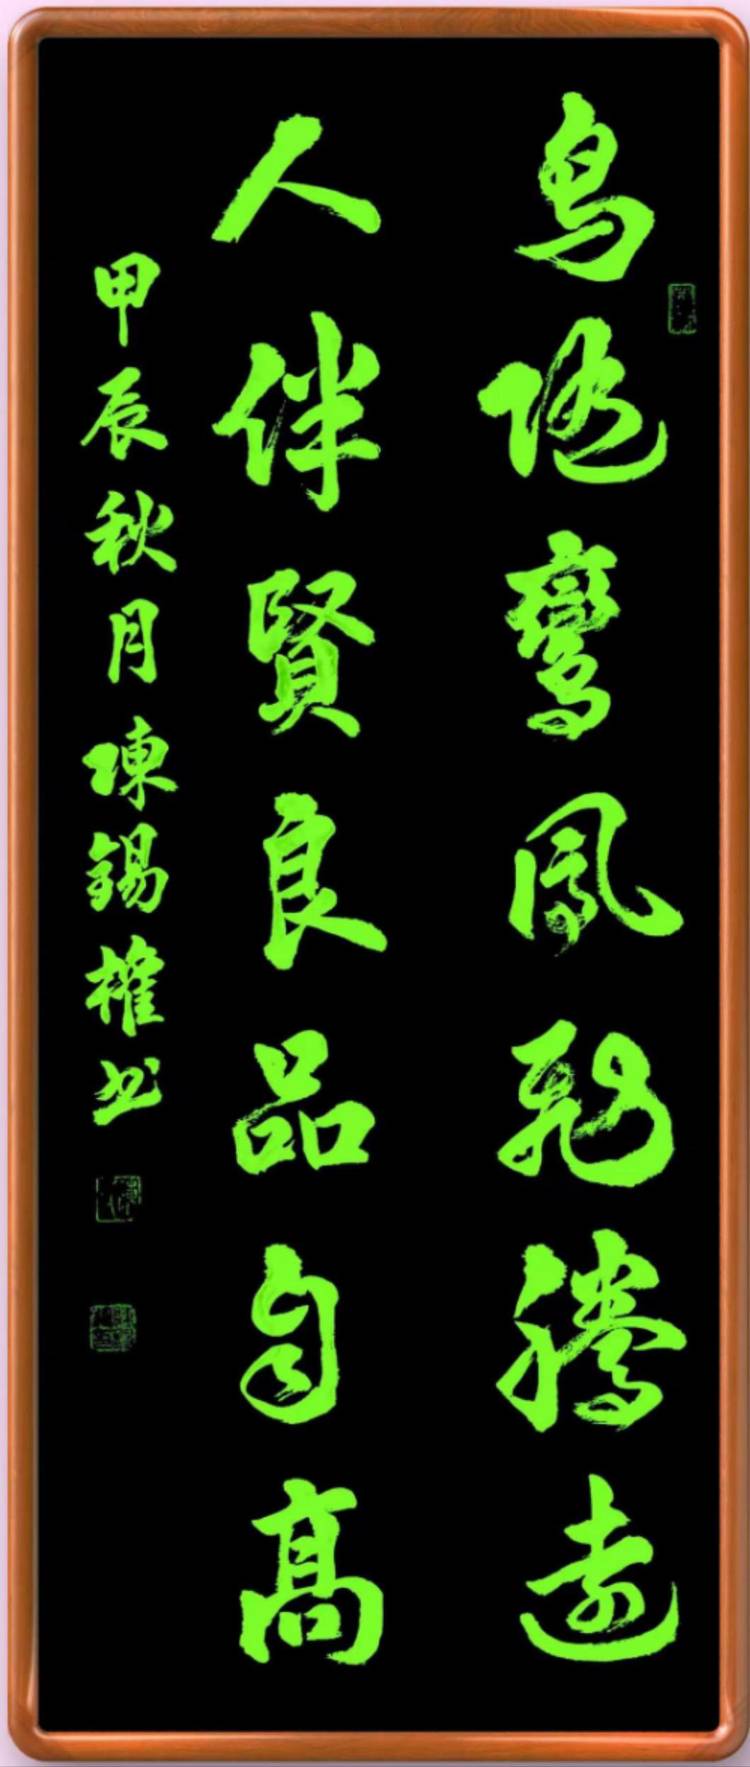 鳥隨鸞鳳飛騰遠
人伴賢良品自高
甲辰秋月陳錫權书